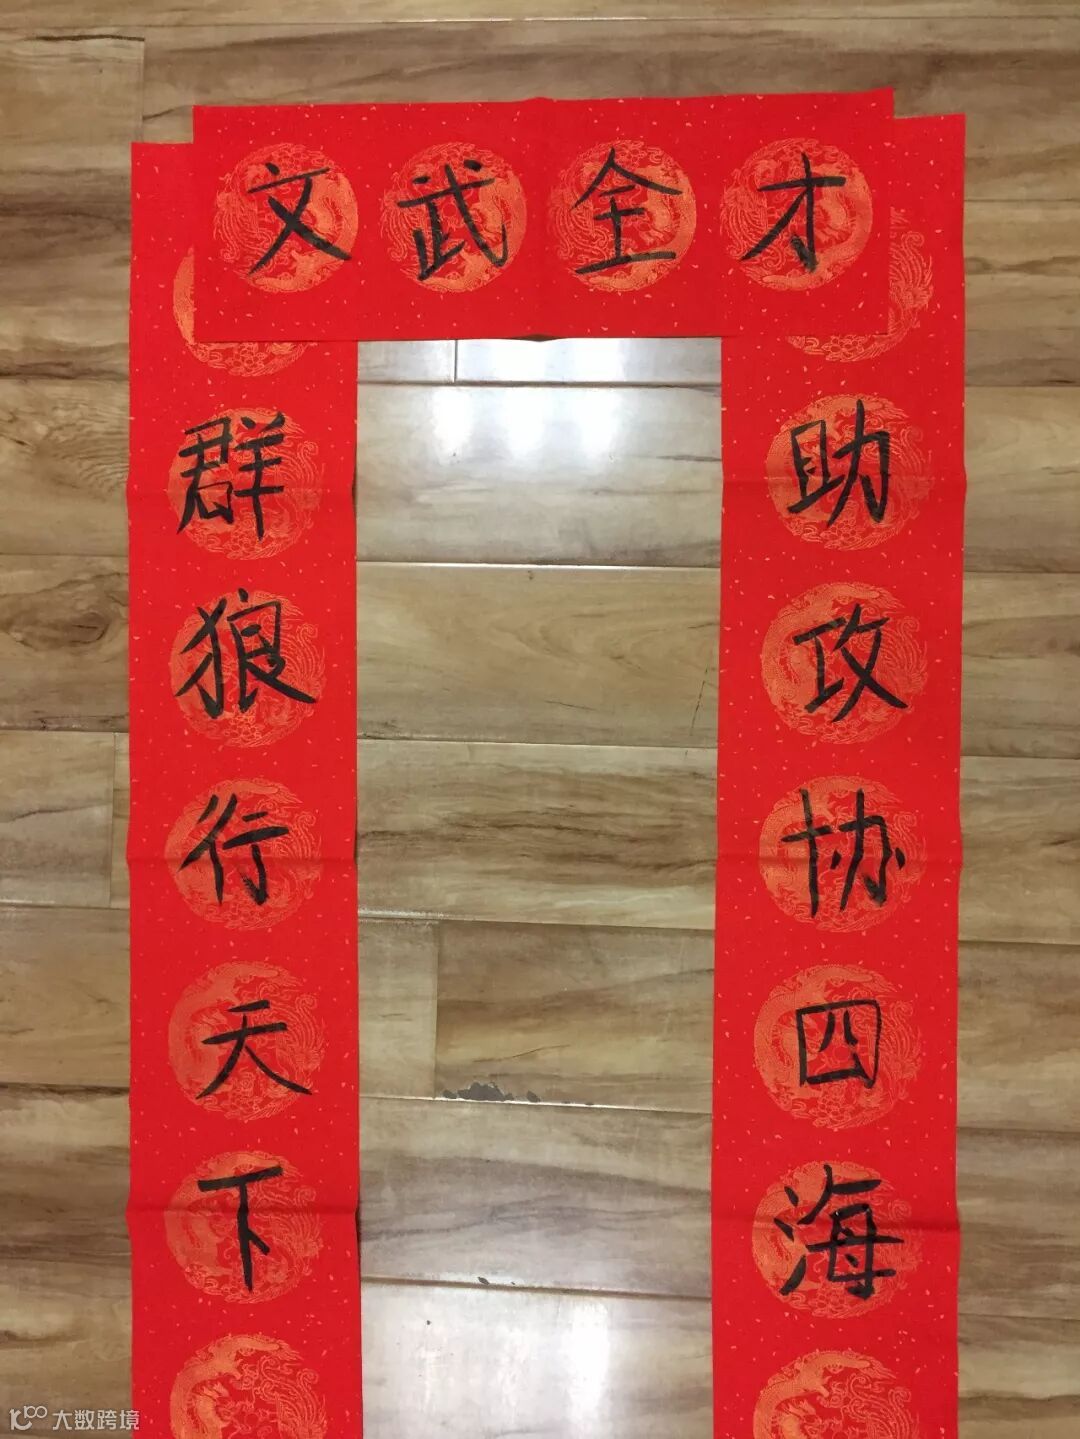 文武全才
群狼行天下
助攻协四海
大数跨境